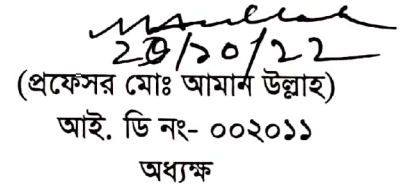 /১০/২২
(প্রফেসর মোঃ আমান উল্লাহ)
আই. ডি নং- ০০২০১১
অধ্যক্ষ